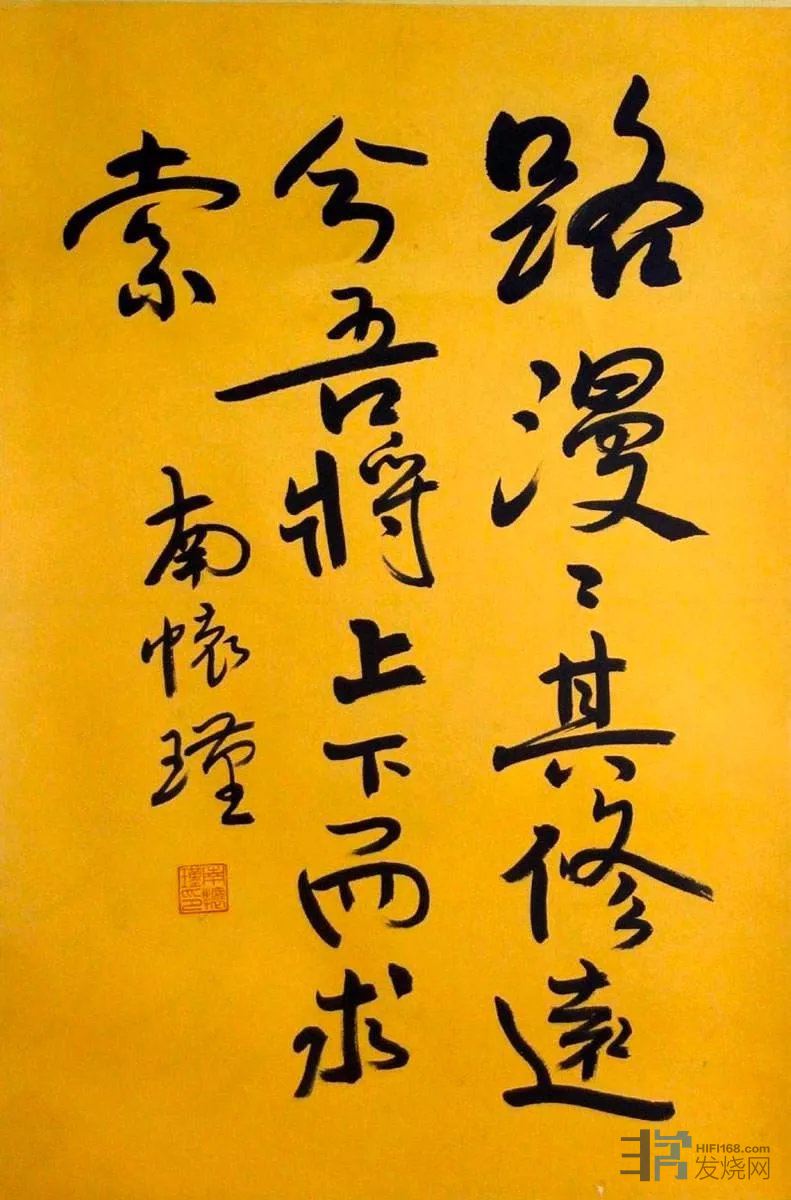 路漫〻其修遠
兮吾將上下而求
索
南懷瑾
南懷瑾印
HIFI168.com
发烧网